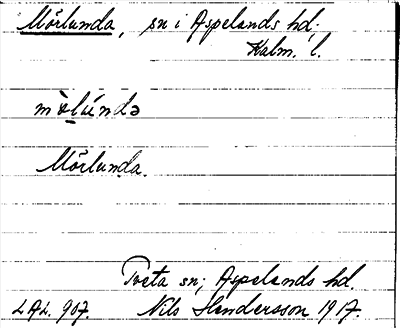 Mörlunda, sn i Aspelands hd.
Kalm. l.
mòlúndə
Mörlunda.
Tveta sn; Aspelands hd.
LAL. 907. Nils Hendersson 1917.